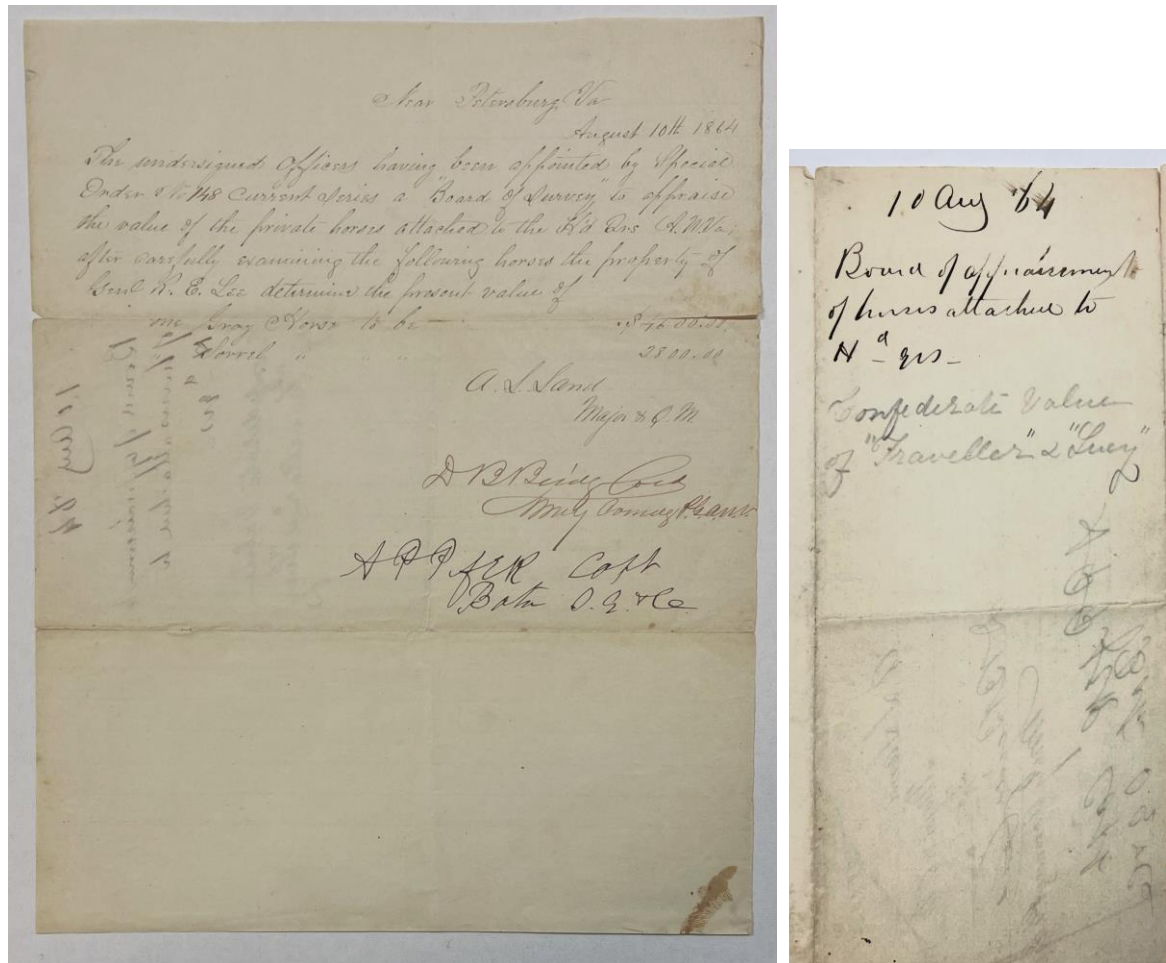 Near Petersburg Va
August 10th 1864
The undersigned Officers having been appointed by Special
Order No 148 Current Series a "Board of Survey" to appraise
the value of the private horses attached to the H'd Qrs A.N.Va.
after carefully examining the following horses the property of
Genl R. E. Lee determine the present value of
one Gray Horse to be $ 4600.00.
Sorrel " " " 2800.00
A. L. Land
Major & Q. M.
D B Bridgford
A P Pifer Capt
Batn
10 Aug '64
Board of appraisement
of horses attached to
Hd qrs
Confederate Value
of "Traveller" & "Lucy"